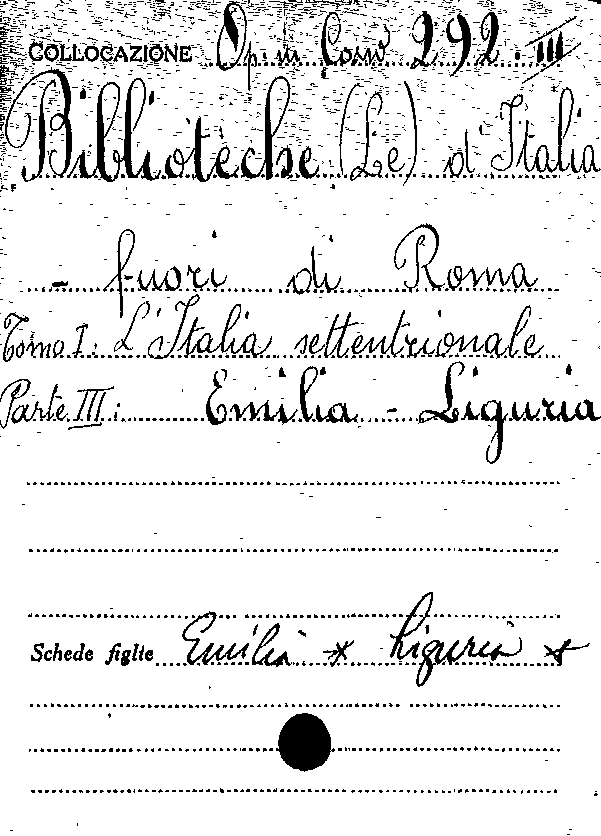 COLLOCAZIONE Op. in Cons 292. III
Biblioteche (Le) d'Italia
- fuori di Roma
Tomo I: L'Italia settentrionale
Parte III: Emilia - Liguria
Schede figlie Emilia * Liguria *